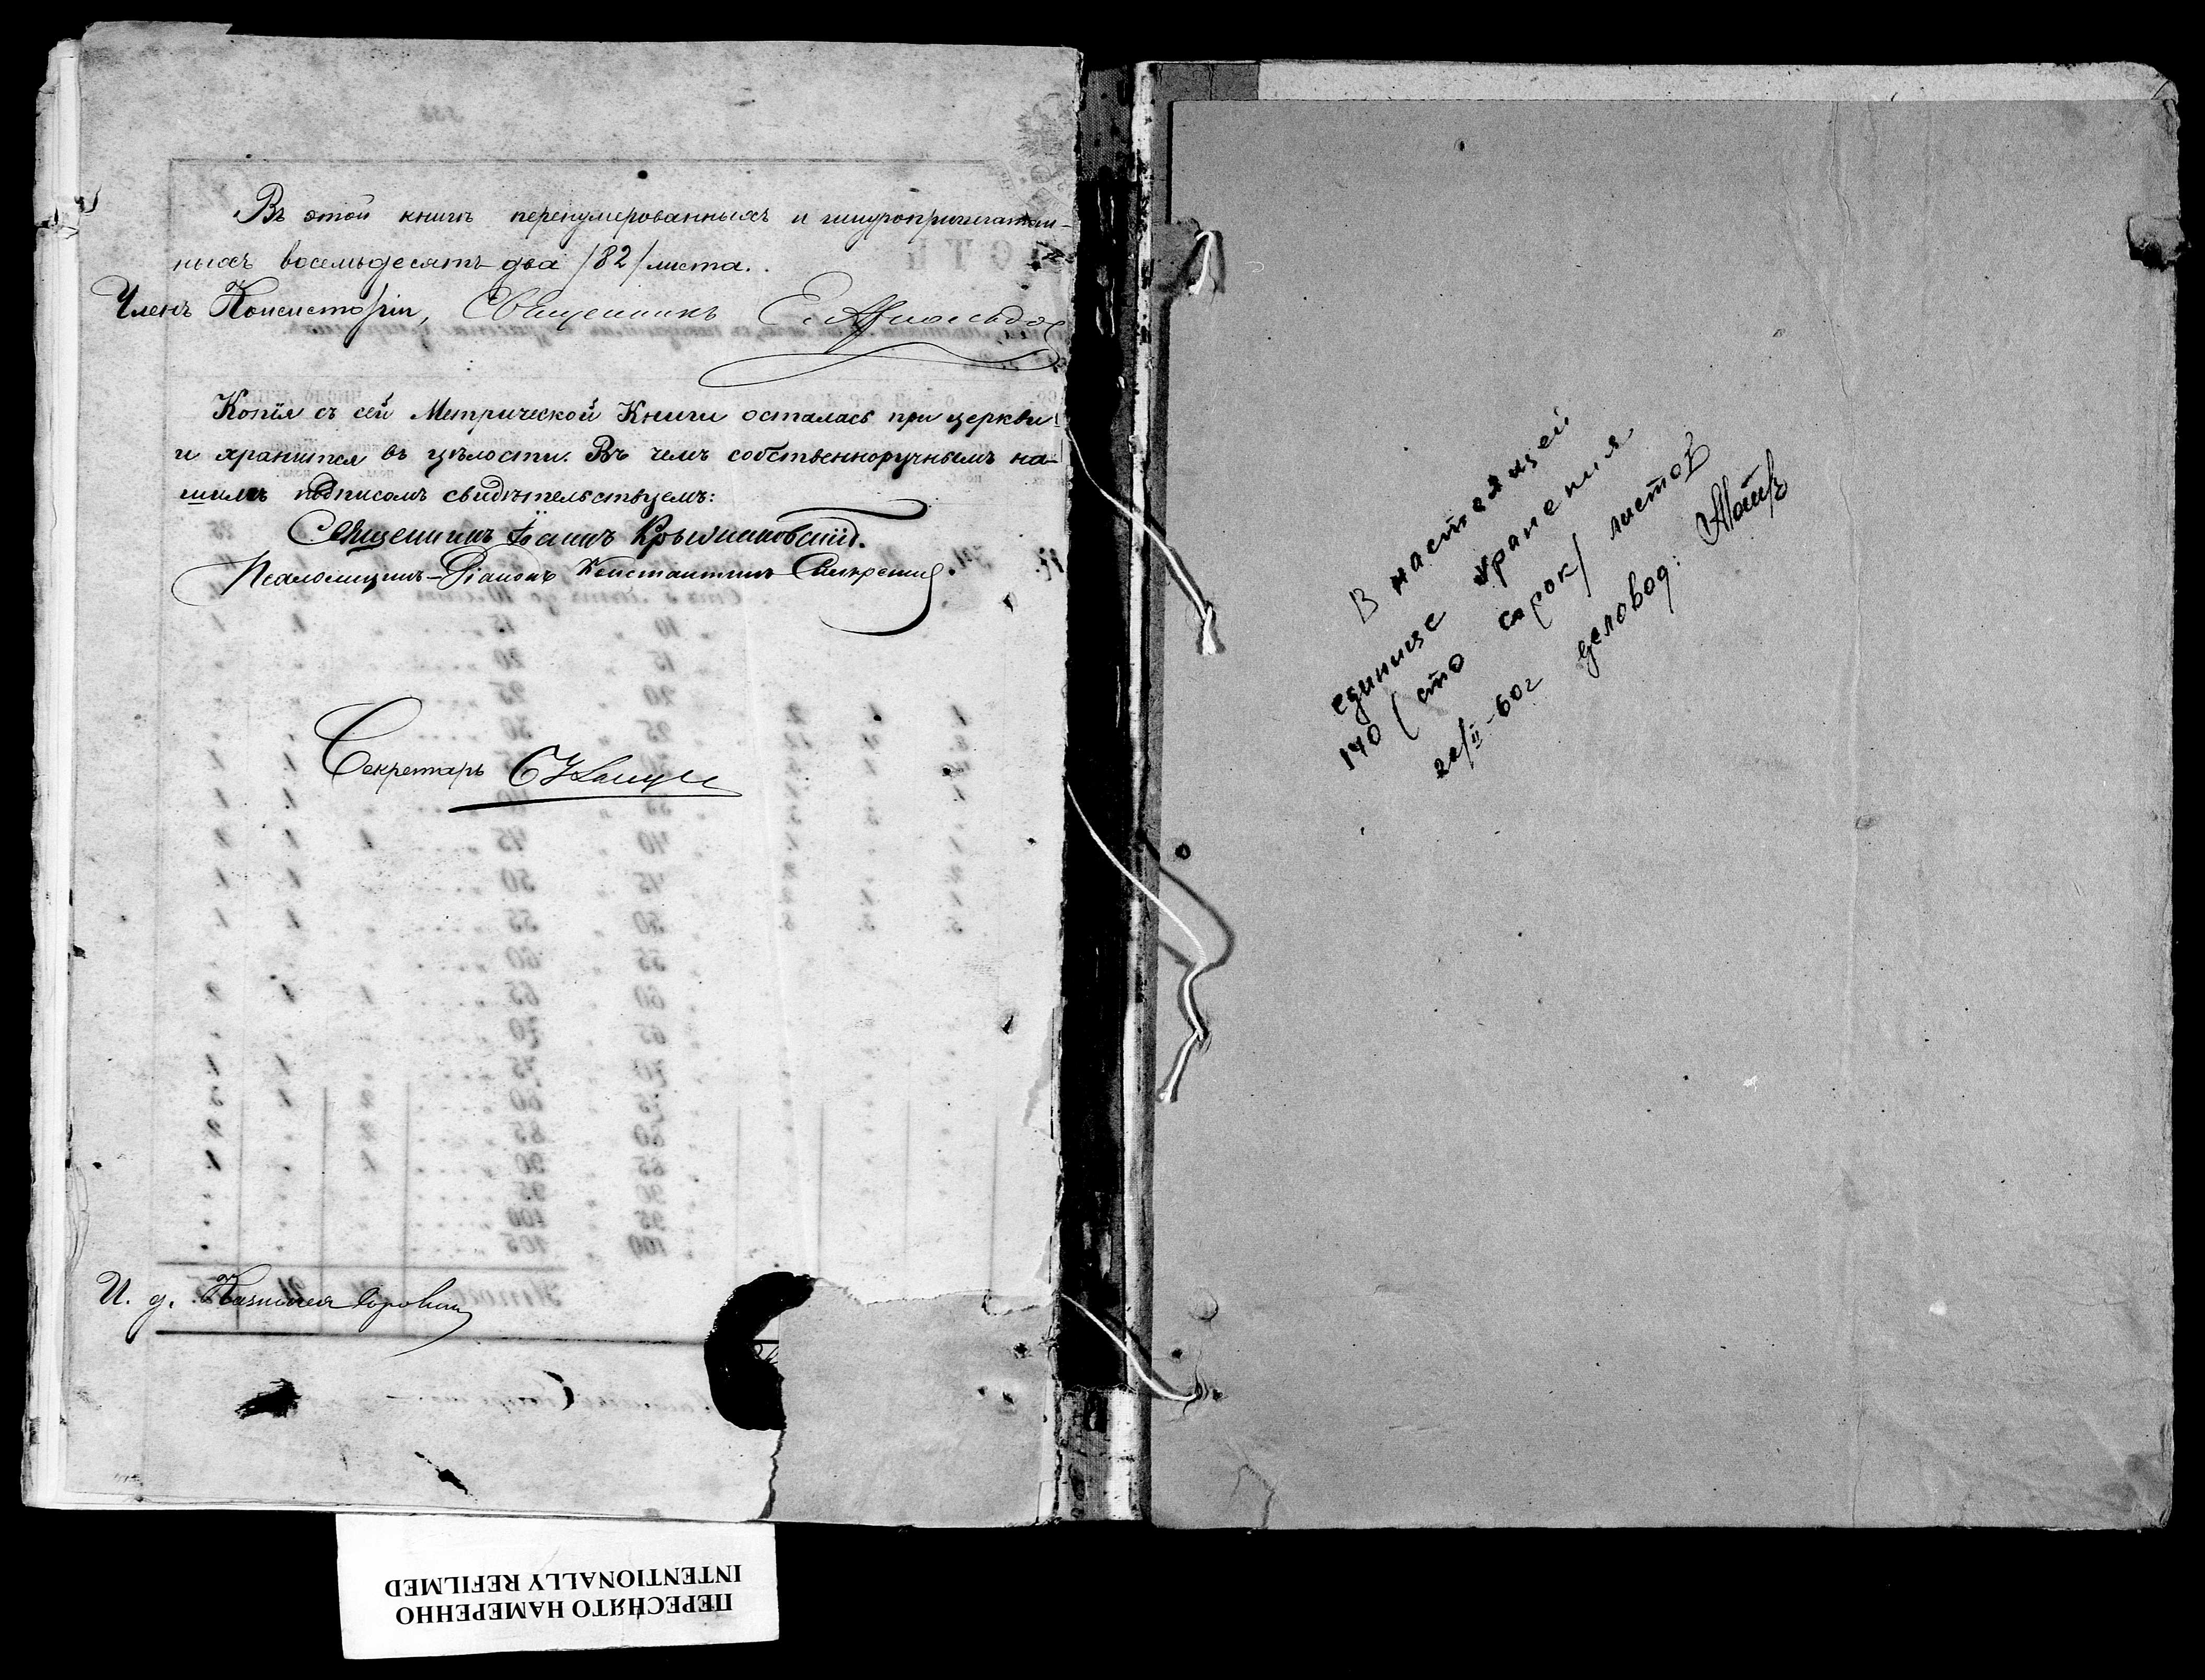 Въ этой книгѣ перенумерованныхъ и шнуропричатан-
ныхъ восемьдесятъ два /82/ листа.
Членъ Консисторіи, Священникъ Е.
Копія съ сей Метрической Книги осталась при церкви
и хранится въ цѣлости. Въ чемъ собственноручнымъ на-
шимъ подписомъ свидѣтельствуемъ:
Священникъ Іоаннъ Крыжановскій.
Псаломщикъ-Діаконъ Константинъ
Секретарь
И. д. Казначея
В настоящей
единице хранения
140 (сто сорок) листов
22/II-60г деловод:
ПЕРЕСНЯТО НАМЕРЕННО
INTENTIONALLY REFILMED